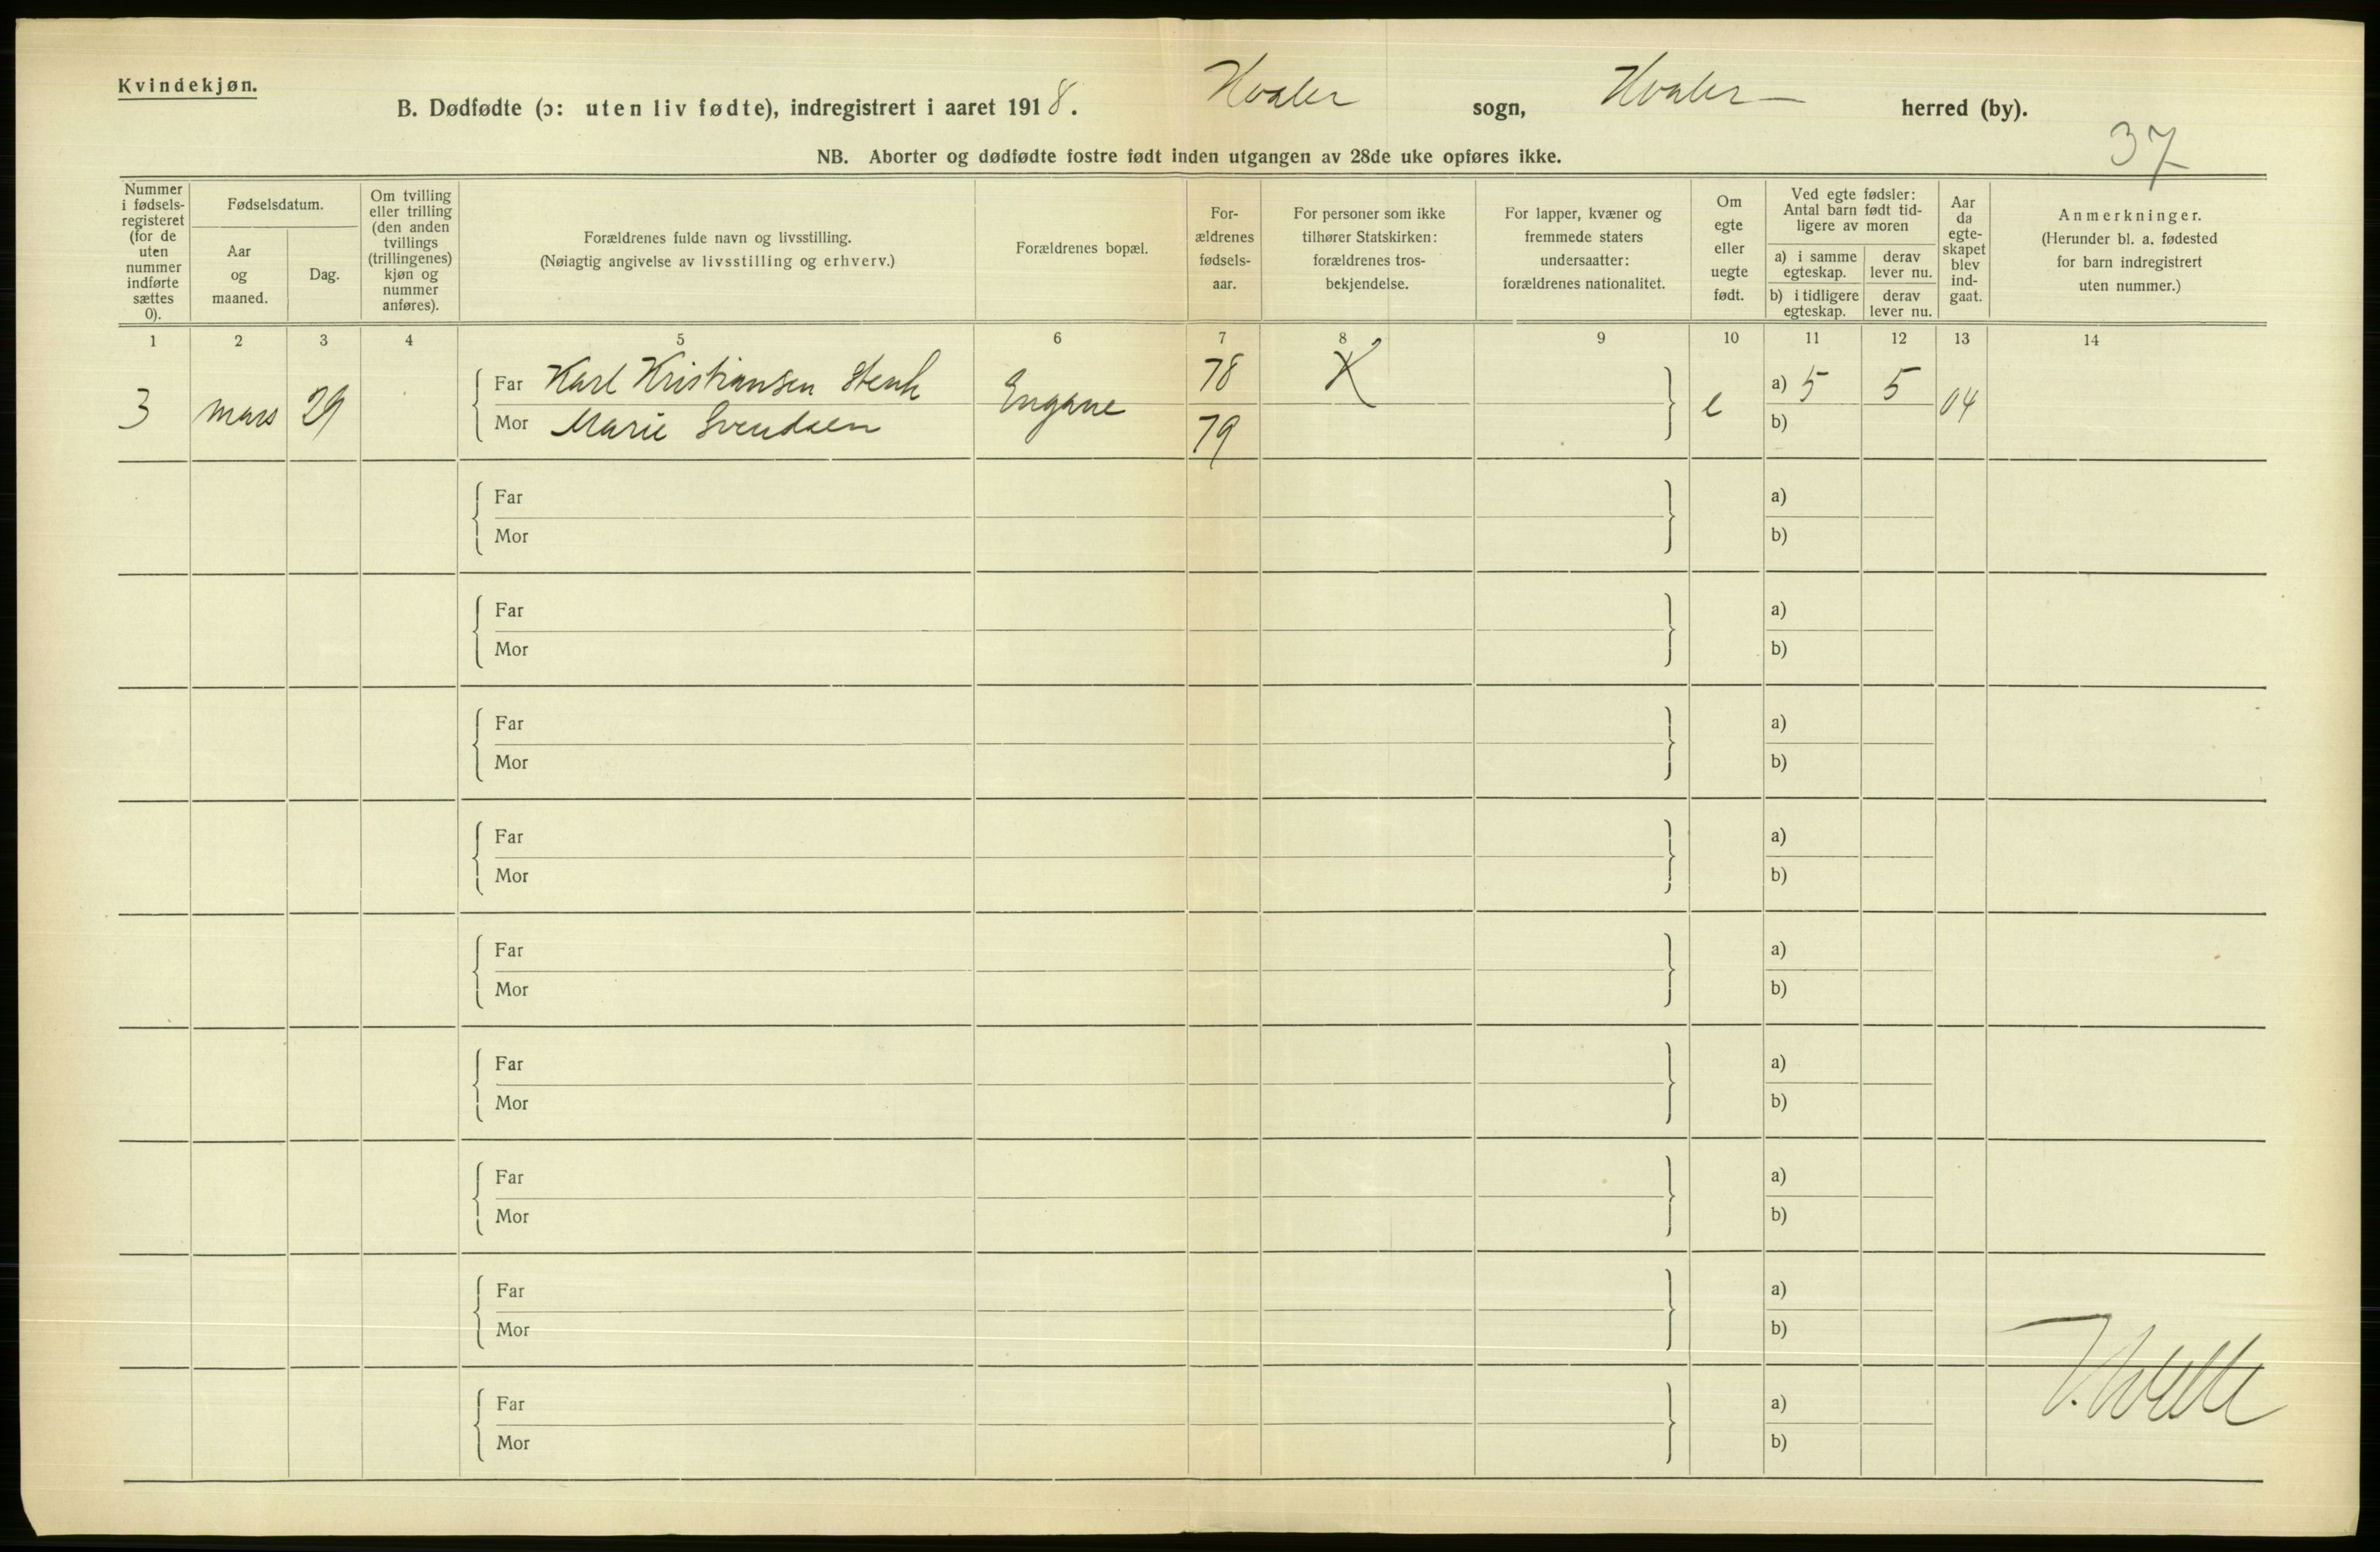 Kvindekjøn.
B. Dødfødte (ɔ: uten liv fødte), indregistrert i aaret 1918. Hvaler sogn, Hvaler herred (by).
37
NB. Aborter og dødfødte fostre født inden utgangen av 28de uke opføres ikke.
Nummer i fødsels-registeret (for de uten nummer indførte sættes 0).
Fødselsdatum.
Aar og maaned.
Dag.
Om tvilling eller trilling (den anden tvillings (trillingenes) kjøn og nummer anføres).
Forældrenes fulde navn og livsstilling.
(Nøiagtig angivelse av livsstilling og erhverv.)
Forældrenes bopæl.
For-ældrenes fødsels-aar.
For personer som ikke tilhører Statskirken: forældrenes tros-bekjendelse.
For lapper, kvæner og fremmede staters undersaatter: forældrenes nationalitet.
Om egte eller uegte født.
Ved egte fødsler: Antal barn født tid-ligere av moren
a) i samme egteskap.
derav lever nu.
b) i tidligere egteskap.
derav lever nu.
Aar da egte-skapet blev ind-gaat.
Anmerkninger.
(Herunder bl. a. fødested for barn indregistrert uten nummer.)
1 2 3 4 5 6 7 8 9 10 11 12 13 14
3 mars 29 Far Karl Kristiansen Engane 78 X e a) 5 5 04
Mor Marie Svendsen 79 b)
Far a)
Mor b)
Far a)
Mor b)
Far a)
Mor b)
Far a)
Mor b)
Far a)
Mor b)
Far a)
Mor b)
Far a)
Mor b)
Far a)
Mor b)
Far a)
Mor b)